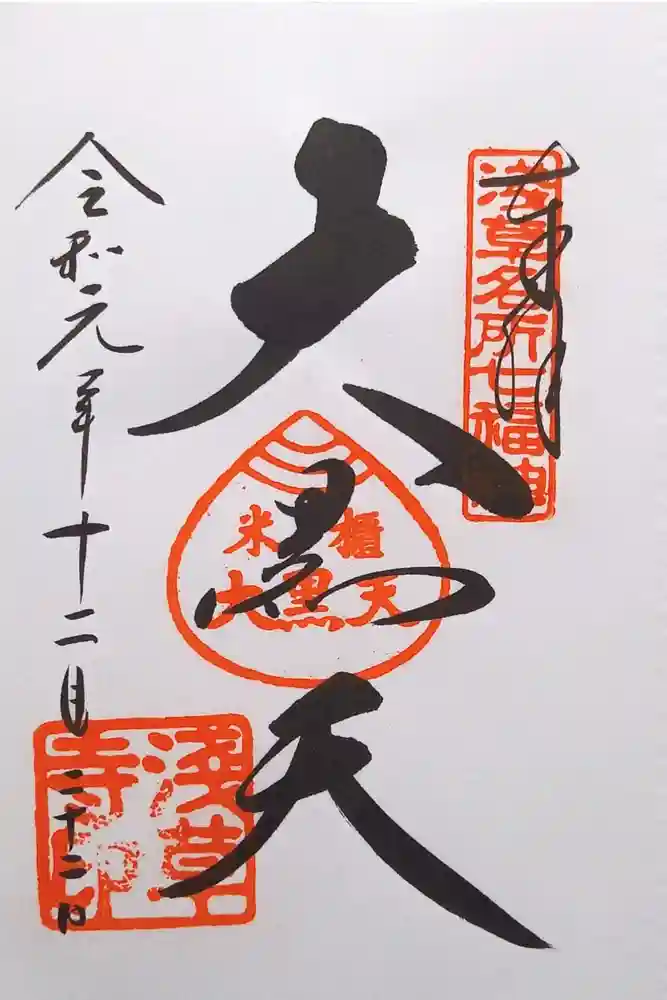 奉拝
浅草名所七福神
大黒天
米櫃
大黒天
令和元年十二月二十二日
浅草
寺印